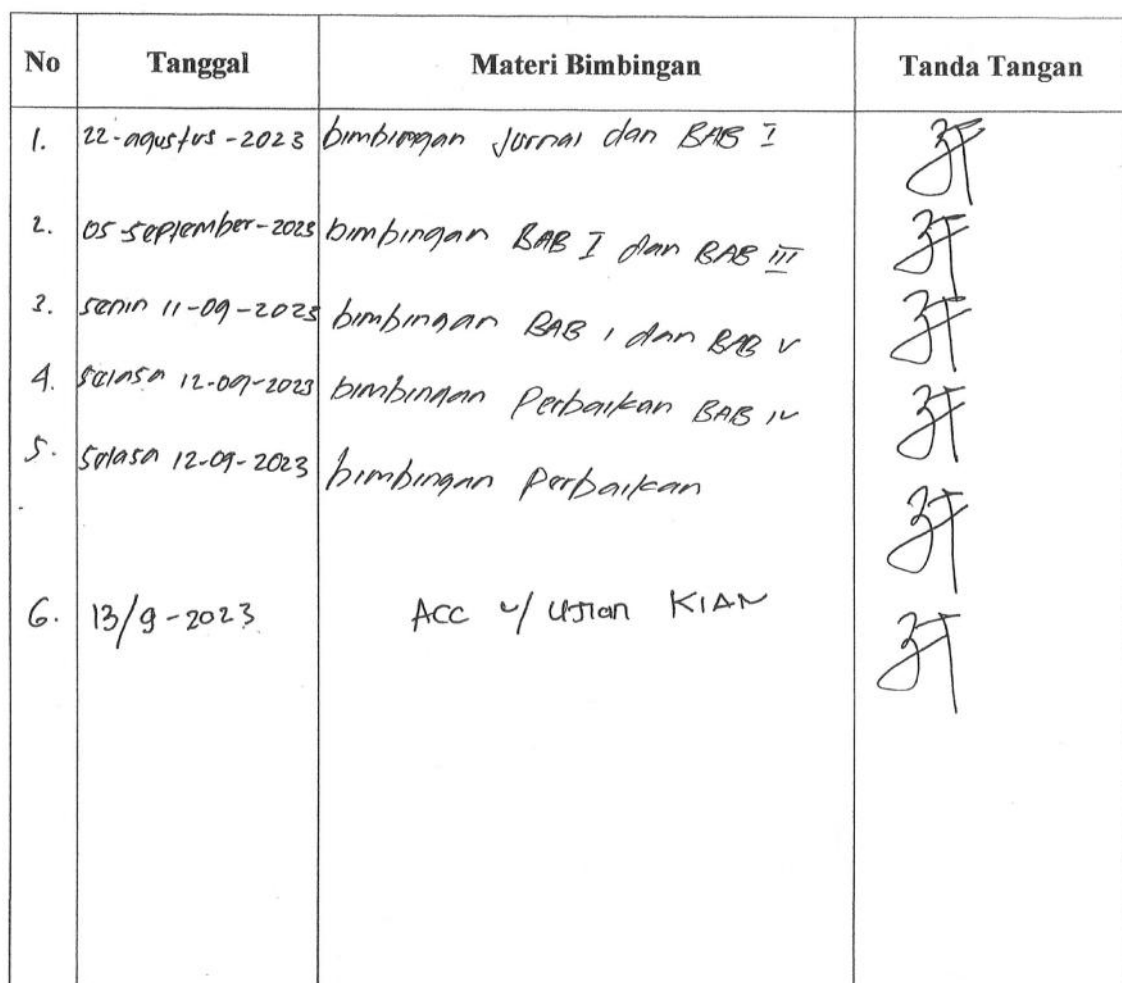 No Tanggal Materi Bimbingan Tanda Tangan
1. 22-agustus-2023 bimbingan Jurnal dan BAB I
2. 05-september-2023 bimbingan BAB I dan BAB III
3. senin 11-09-2023 bimbingan BAB I dan BAB V
4. selasa 12-09-2023 bimbingan Perbaikan BAB IV
5. selasa 12-09-2023 bimbingan Perbaikan
6. 13/9-2023 ACC u/ Ujian KIAN